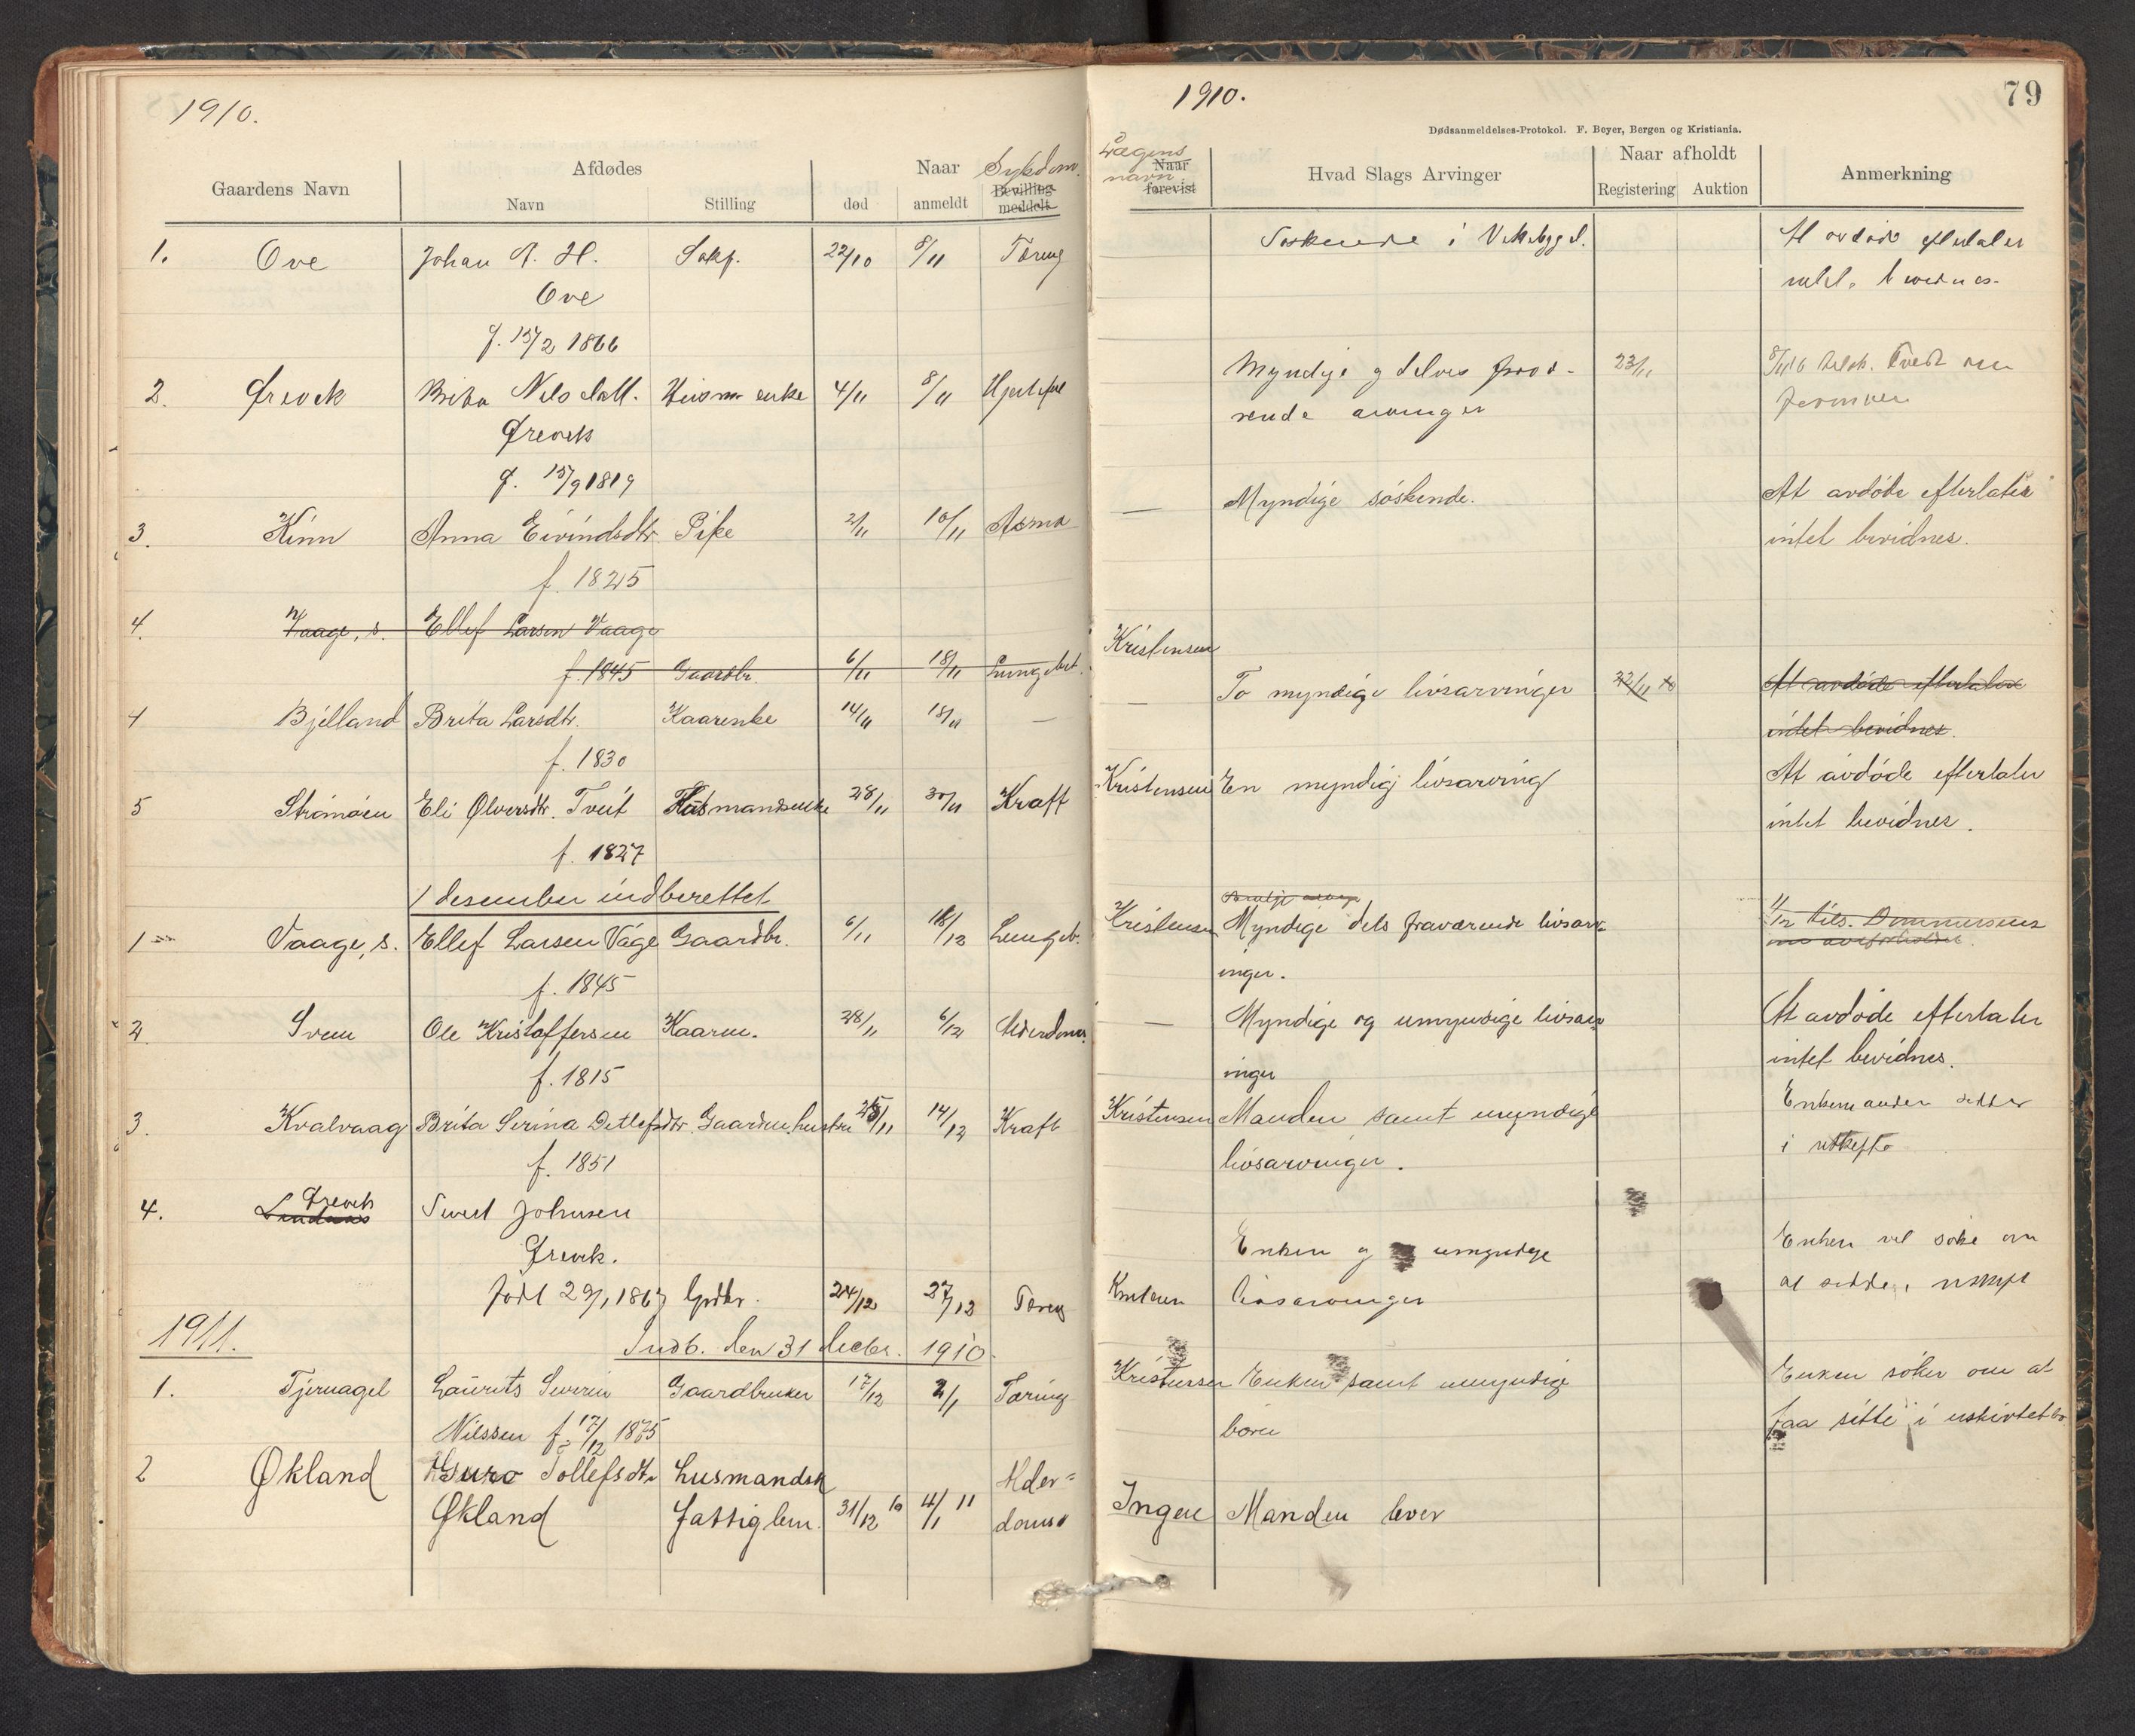 1910.
Gaardens Navn
Afdødes
Navn
Stilling
Naar
død
anmeldt
Sykdom.
Bevilling
meddelt
1. Ove Johan A. H. 22/10 8/11 Tæring
Ove
f. 15/2 1866
2. Økevik Brita Nilsdatt. Husm. enke 4/11 8/11 Hjertefeil
f. 15/9 1819
3. Kinn Anna Eivindsdtr. Pike 2/11 10/11 Asma
f. 1825
4. Vaage, s. Ellef Larsen Vaage
f. 1845 Gaardbr. 6/11 18/11 Lungebet.
4 Bjelland Brita Larsdtr. Kaarenke 14/11 18/11 —
f. 1830
5 Strømøen Eli Ølversdtr. Tveit Husmandsenke 28/11 30/11 Kraft
f. 1827
1 desember indberettet
1 Vaage, s. Ellef Larsen Våge Gaardbr. 6/11 18/12 Lungeb.
f. 1845
2. Sveen Ole Kristoffersen Kaarm. 28/11 6/12 Alderdoms.
f. 1815
3. Kvalvaag Brita Serina Detlefsdtr. Gaardm. hustru 25/11 14/12 Kraft
f. 1851
4. Johnsen
Født 29/1 1867 Grdbr. 24/12 27/12 Tæring
1911.
Indb. den 31 decbr. 1910.
1. Tjernagel Laurits Severin Gaardbruker 17/12 2/1 Tæring
Nilssen f. 17/12 1875
2 Økland Guro Tollefsdtr. husmandsk Alder=
Økland fattiglem. 31/12 10 4/1 11 doms
1910.
79
Dødsanmeldelses-Protokol. F. Beyer, Bergen og Kristiania.
Lægens
navn
Naar
forevist
Hvad Slags Arvinger
Naar afholdt
Registering
Auktion
Anmerkning
Søskende i At avdøde efterlater
intet bevidnes.
Myndige og delvis fravæ- 23/11
rende arvinger
— Myndige søskende. At avdøde efterlater
intet bevidnes.
Kristensen
— To myndige livsarvinger 22/11 10 At avdøde efterlater
intet bevidnes.
Kristensen En myndig livsarving At avdøde efterlater
intet bevidnes.
Kristensen Myndige dels fraværende livsarv-
inger.
— Myndige og umyndige livsarv At avdøde efterlater
inger intet bevidnes.
Kristensen Manden samt umyndige Enkemanden sidder
livsarvinger. i uskifte
Enken og umyndige Enken vil søke om
livsarvinger at sidde i uskifte
Kristensen Enken samt umyndige Enken søker om at
børn faa sitte i uskiftet bo
Ingen Manden lever